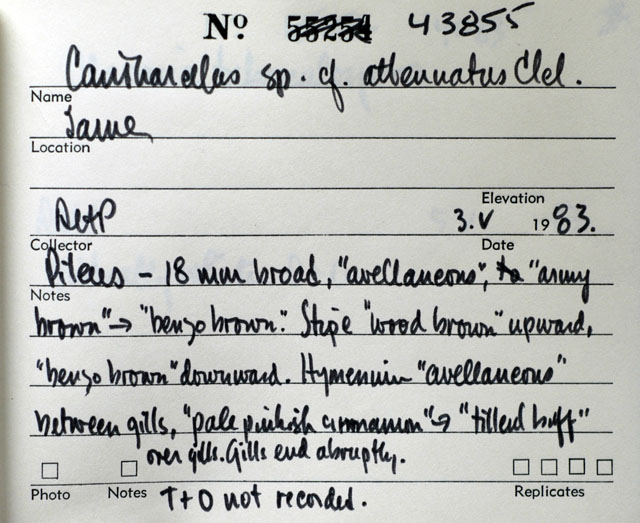 Nº 55254 43855
Cantharellus sp. cf. attenuatus Clel.
Name
Same
Location
Elevation
3.V 1983.
Collector Date
Pileus – 18 mm broad, "avellaneous", to "army
Notes
brown" → "benzo brown." Stipe "wood brown" upward,
"benzo brown" downward. Hymenium "avellaneous"
between gills, "pale pinkish cinnamon" → "tilleul buff"
over gills. Gills end abruptly.
Photo Notes T+O not recorded. Replicates